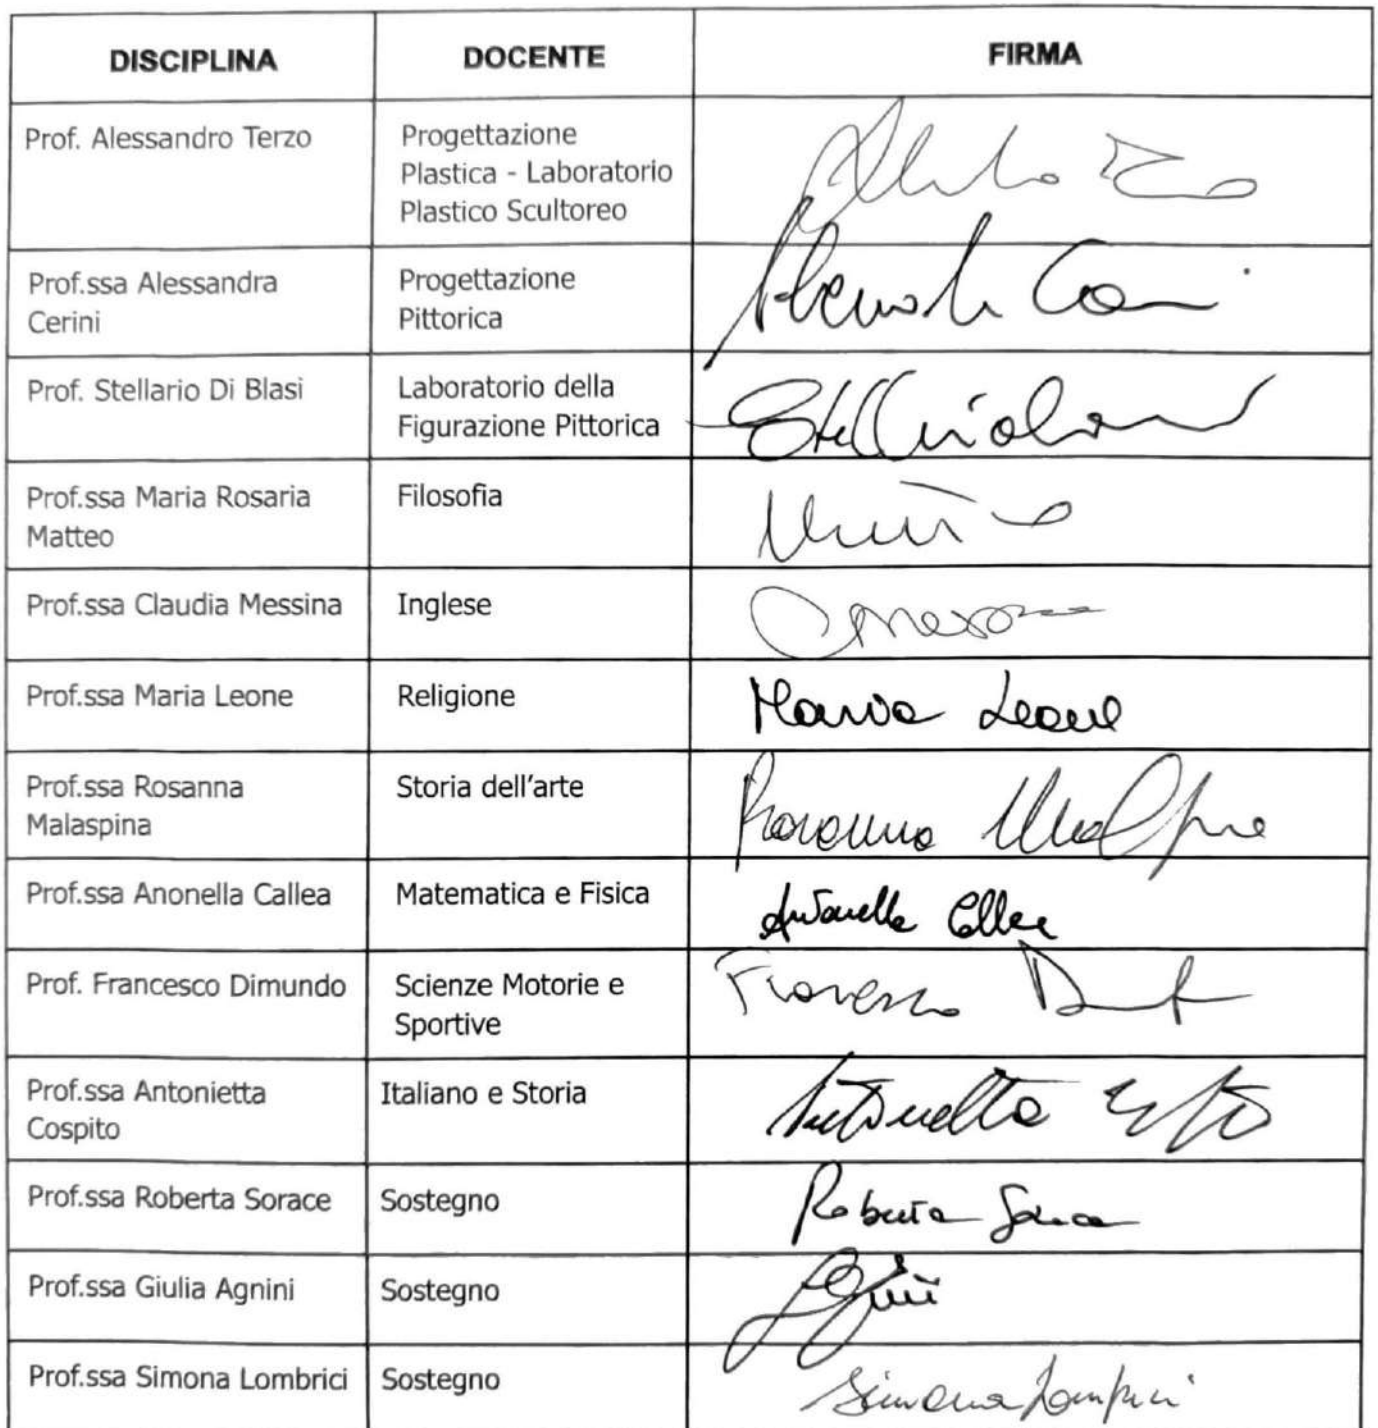 DISCIPLINA DOCENTE FIRMA
Prof. Alessandro Terzo Progettazione
Plastica - Laboratorio
Plastico Scultoreo
Prof.ssa Alessandra Progettazione
Cerini Pittorica
Prof. Stellario Di Blasi Laboratorio della
Figurazione Pittorica
Prof.ssa Maria Rosaria Filosofia
Matteo
Prof.ssa Claudia Messina Inglese
Prof.ssa Maria Leone Religione Maria Leone
Prof.ssa Rosanna Storia dell'arte
Malaspina
Prof.ssa Anonella Callea Matematica e Fisica Antonella Callea
Prof. Francesco Dimundo Scienze Motorie e Francesco
Sportive
Prof.ssa Antonietta Italiano e Storia Antonietta
Cospito
Prof.ssa Roberta Sorace Sostegno Roberta Sorace
Prof.ssa Giulia Agnini Sostegno
Prof.ssa Simona Lombrici Sostegno Simona Lombrici